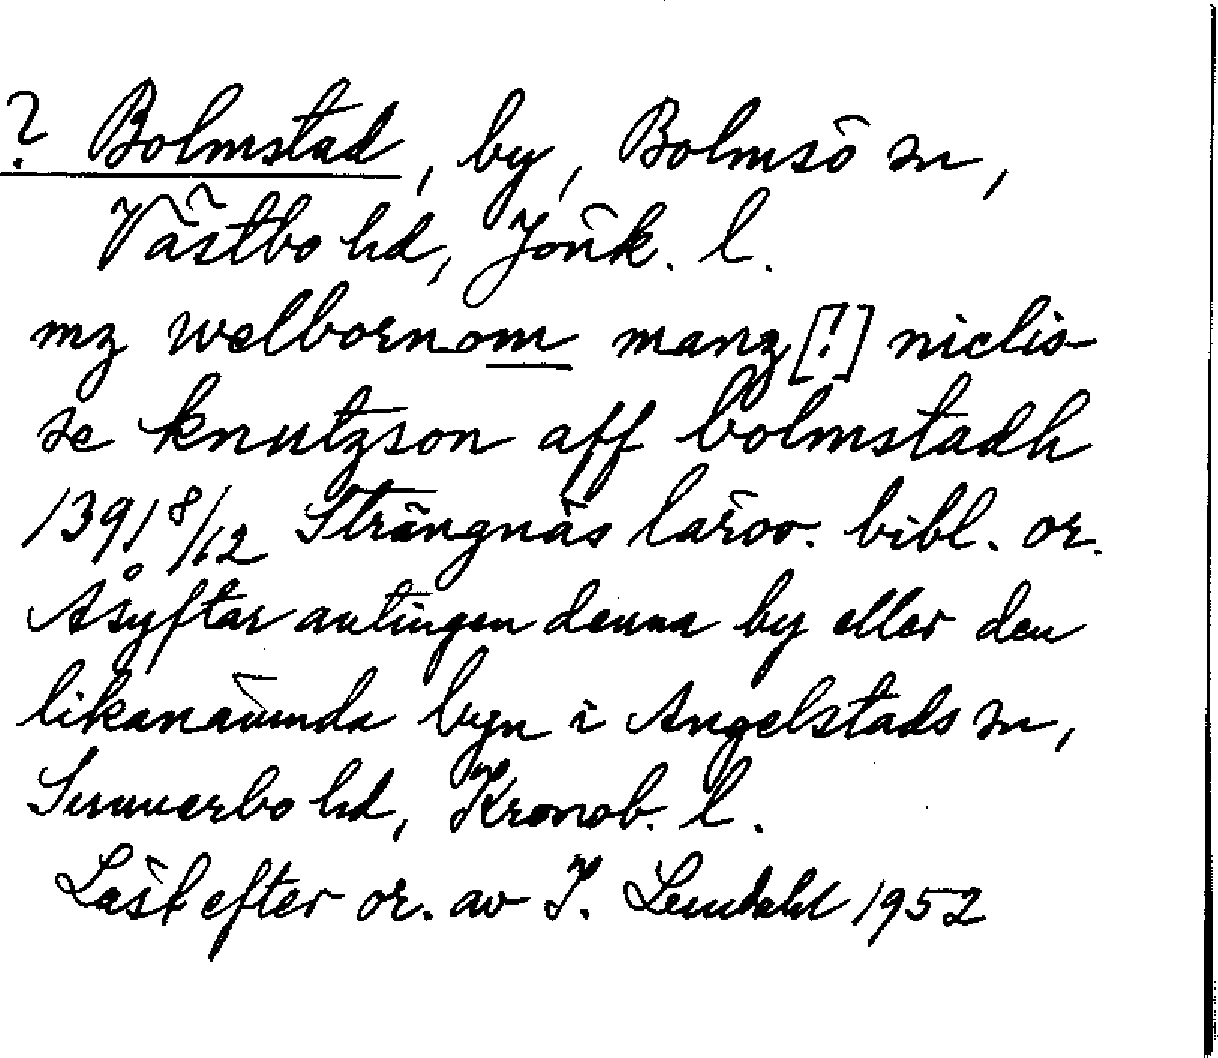 ? Bolmstad, by, Bolmsö sn,
Västbo hd, Jönk. l.
mz welbornom manz [!] niclis-
se knutzson aff bolmstadh
1391 8/12 Strängnäs lärov. bibl. or.
Åsyftar antingen denna by eller den
likanämnda byn i Angelstads sn,
Sunnerbo hd, Kronob. l.
Läst efter or. av J. Liendahl 1952